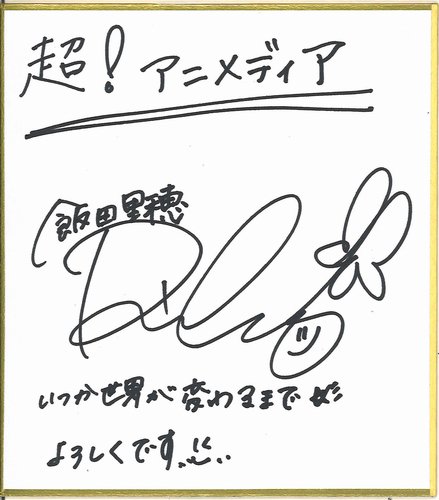 超！アニメディア
飯田里穂
Rip
いつか世界が変わるまで
よろしくです